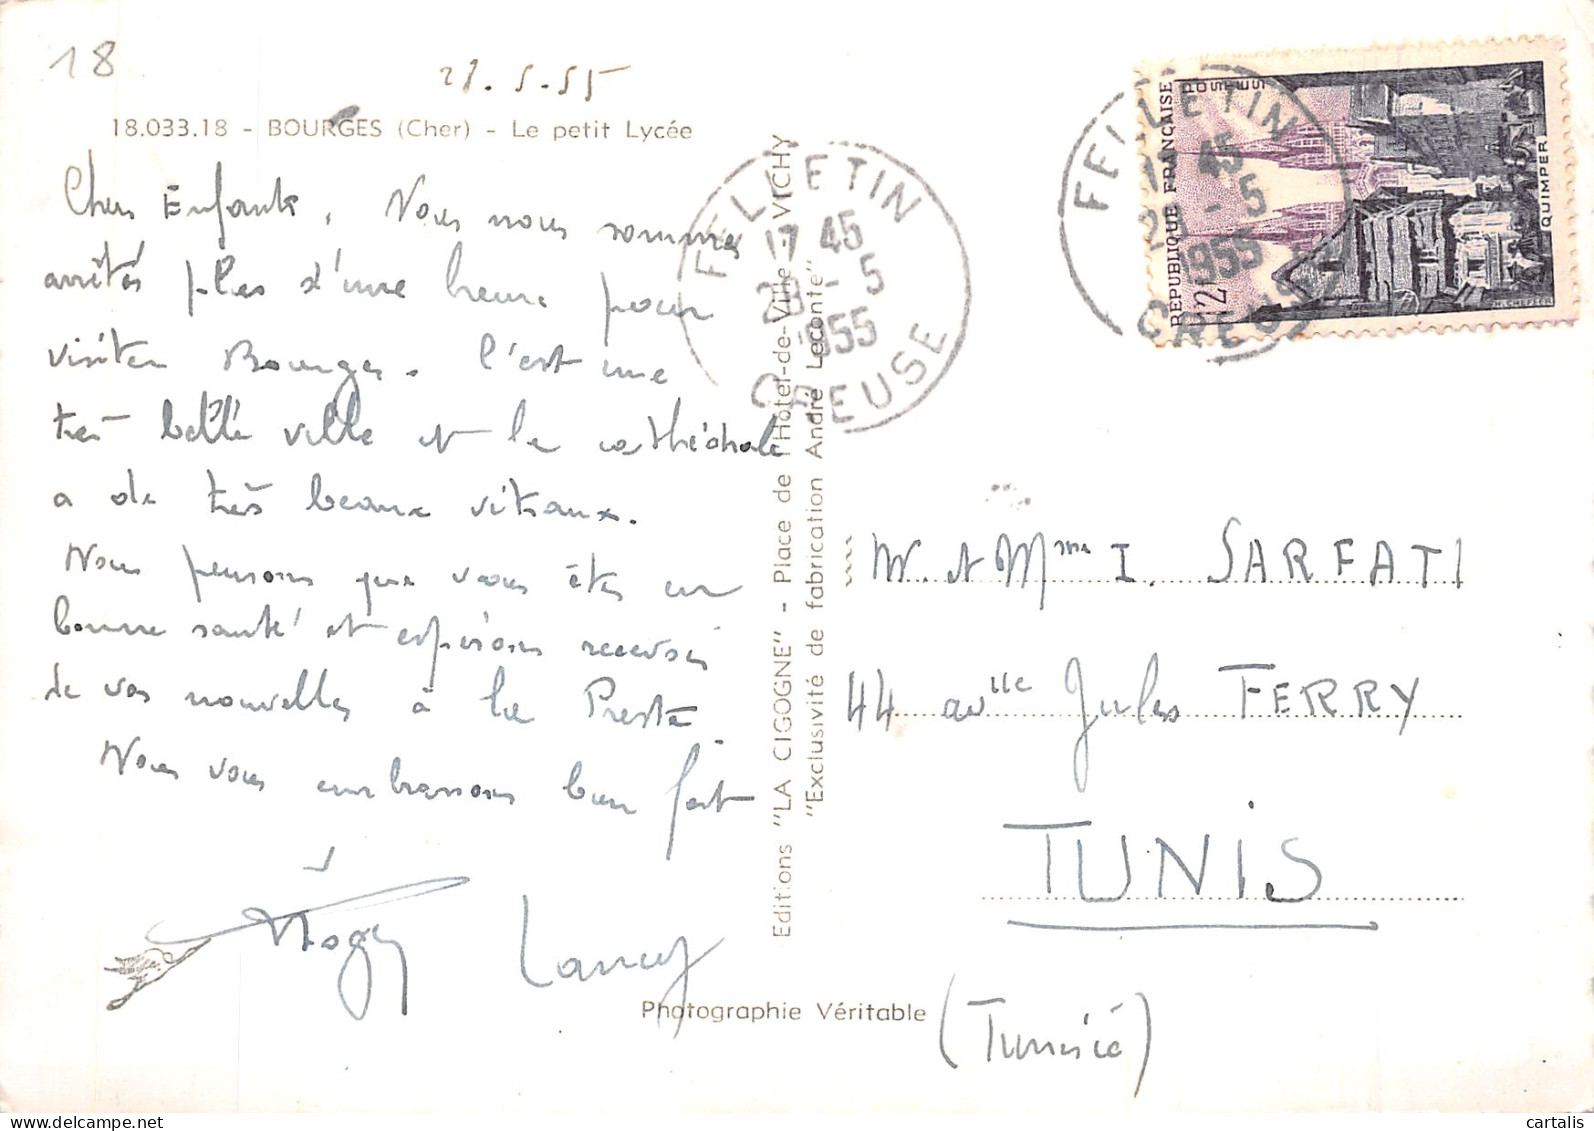 18
27.5.55
18.033.18 - BOURGES (Cher) - Le petit Lycée
Chers Enfants, Nous nous sommes
arrêtés plus d'une heure pour
visiter Bourges. C'est une
très belle ville et la cathédrale
a de très beaux vitraux.
Nous pensons que vous êtes en
bonne santé et espérons recevoir
de vos nouvelles à la Preste.
Nous vous embrassons bien fort
Editions "LA CIGOGNE" - Place de l'Hôtel-de-Ville - VICHY
"Exclusivité de fabrication André Leconte"
Photographie Véritable
FELLETIN
17 45
28 - 5
1955
CREUSE
FELLETIN
17 45
28 - 5
1955
CREUSE
REPUBLIQUE FRANÇAISE
POSTES
12F
QUIMPER
H. CHEFFER
M. et Mme I. SARFATI
44 avenue Jules FERRY
TUNIS
(Tunisie)
cartalis | delcampe.net